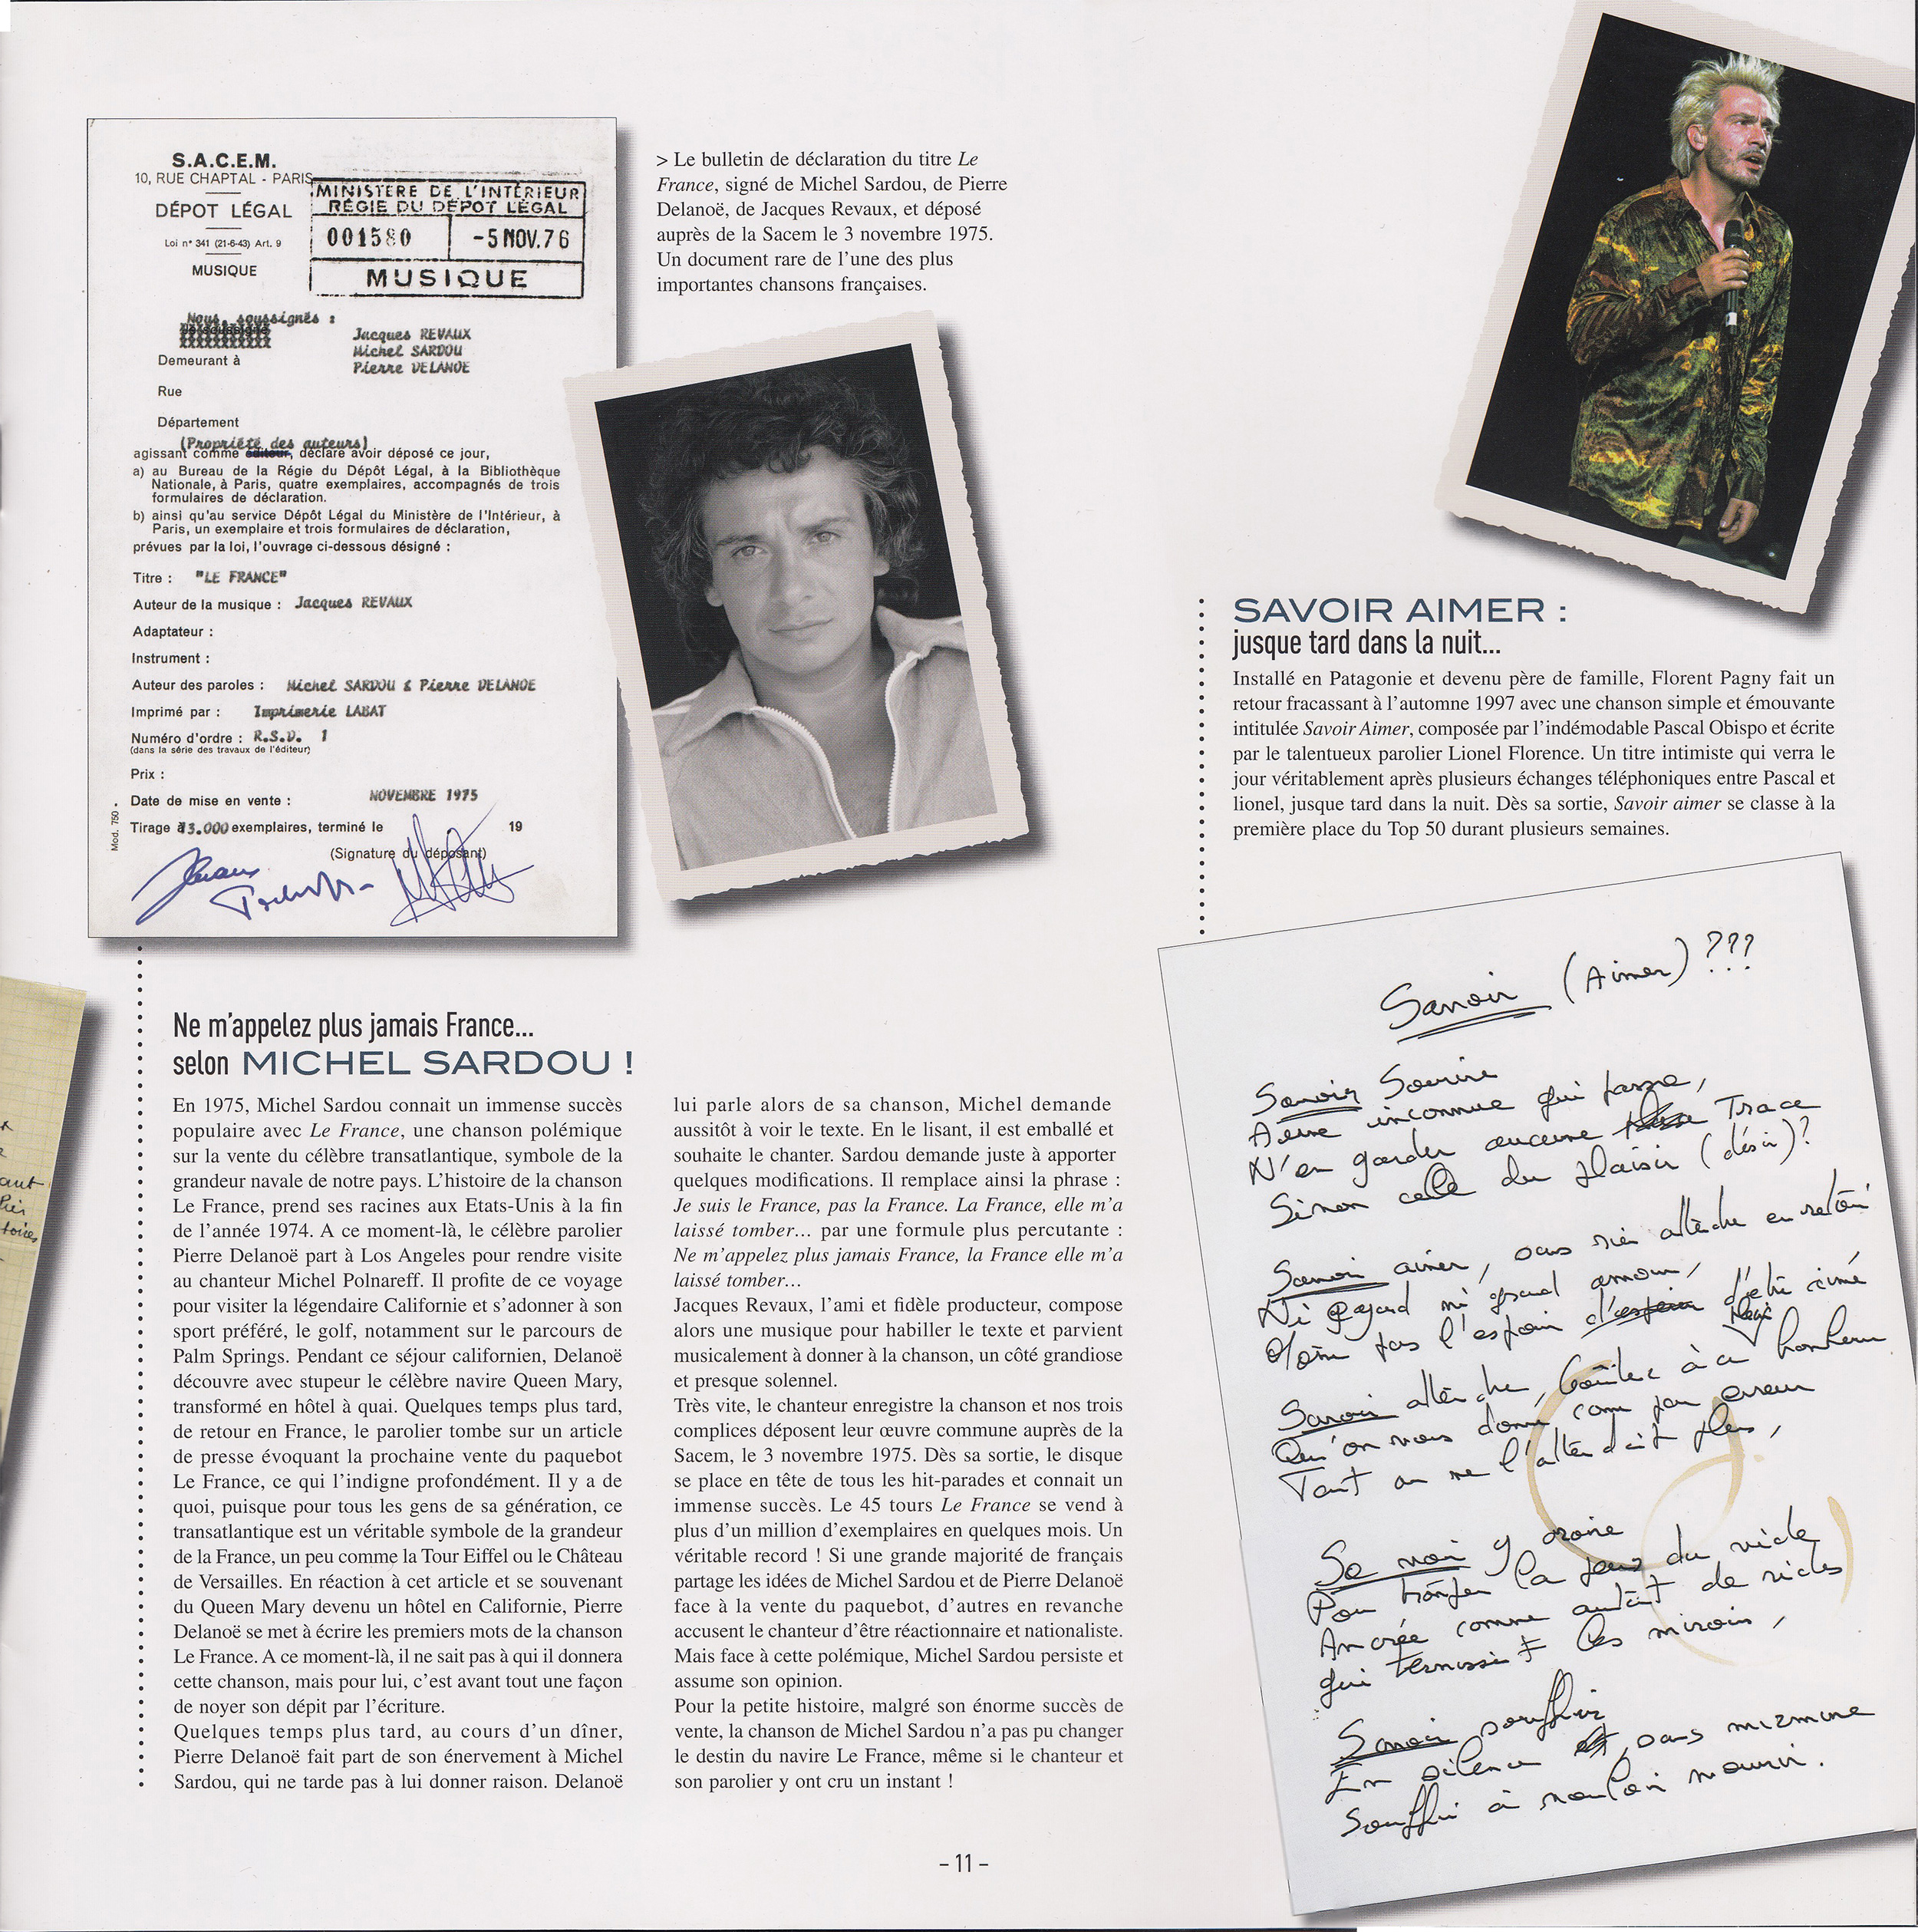 S.A.C.E.M.
10, RUE CHAPTAL - PARIS
DÉPOT LÉGAL
Loi n° 341 (21-6-43) Art. 9
MUSIQUE
MINISTÈRE DE L'INTÉRIEUR
RÉGIE DU DÉPOT LÉGAL
001580
-5 NOV.76
MUSIQUE
Nous, soussignés :
Jacques REVAUX
Michel SARDOU
Pierre DELANOE
Demeurant à
Rue
Département
(Propriété des auteurs)
agissant comme éditeur, déclare avoir déposé ce jour,
a) au Bureau de la Régie du Dépôt Légal, à la Bibliothèque
Nationale, à Paris, quatre exemplaires, accompagnés de trois
formulaires de déclaration.
b) ainsi qu'au service Dépôt Légal du Ministère de l'Intérieur, à
Paris, un exemplaire et trois formulaires de déclaration,
prévues par la loi, l'ouvrage ci-dessous désigné :
Titre : "LE FRANCE"
Auteur de la musique : Jacques REVAUX
Adaptateur :
Instrument :
Auteur des paroles : Michel SARDOU & Pierre DELANOE
Imprimé par : Imprimerie LABAT
Numéro d'ordre : R.S.D. 1
(dans la série des travaux de l'éditeur)
Prix :
Date de mise en vente : NOVEMBRE 1975
Tirage à 3.000 exemplaires, terminé le 19
(Signature du déposant)
Mod. 750 .
> Le bulletin de déclaration du titre Le
France, signé de Michel Sardou, de Pierre
Delanoë, de Jacques Revaux, et déposé
auprès de la Sacem le 3 novembre 1975.
Un document rare de l'une des plus
importantes chansons françaises.
Ne m'appelez plus jamais France...
selon MICHEL SARDOU !
En 1975, Michel Sardou connait un immense succès
populaire avec Le France, une chanson polémique
sur la vente du célèbre transatlantique, symbole de la
grandeur navale de notre pays. L'histoire de la chanson
Le France, prend ses racines aux Etats-Unis à la fin
de l'année 1974. A ce moment-là, le célèbre parolier
Pierre Delanoë part à Los Angeles pour rendre visite
au chanteur Michel Polnareff. Il profite de ce voyage
pour visiter la légendaire Californie et s'adonner à son
sport préféré, le golf, notamment sur le parcours de
Palm Springs. Pendant ce séjour californien, Delanoë
découvre avec stupeur le célèbre navire Queen Mary,
transformé en hôtel à quai. Quelques temps plus tard,
de retour en France, le parolier tombe sur un article
de presse évoquant la prochaine vente du paquebot
Le France, ce qui l'indigne profondément. Il y a de
quoi, puisque pour tous les gens de sa génération, ce
transatlantique est un véritable symbole de la grandeur
de la France, un peu comme la Tour Eiffel ou le Château
de Versailles. En réaction à cet article et se souvenant
du Queen Mary devenu un hôtel en Californie, Pierre
Delanoë se met à écrire les premiers mots de la chanson
Le France. A ce moment-là, il ne sait pas à qui il donnera
cette chanson, mais pour lui, c'est avant tout une façon
de noyer son dépit par l'écriture.
Quelques temps plus tard, au cours d'un dîner,
Pierre Delanoë fait part de son énervement à Michel
Sardou, qui ne tarde pas à lui donner raison. Delanoë
lui parle alors de sa chanson, Michel demande
aussitôt à voir le texte. En le lisant, il est emballé et
souhaite le chanter. Sardou demande juste à apporter
quelques modifications. Il remplace ainsi la phrase :
Je suis le France, pas la France. La France, elle m'a
laissé tomber... par une formule plus percutante :
Ne m'appelez plus jamais France, la France elle m'a
laissé tomber...
Jacques Revaux, l'ami et fidèle producteur, compose
alors une musique pour habiller le texte et parvient
musicalement à donner à la chanson, un côté grandiose
et presque solennel.
Très vite, le chanteur enregistre la chanson et nos trois
complices déposent leur œuvre commune auprès de la
Sacem, le 3 novembre 1975. Dès sa sortie, le disque
se place en tête de tous les hit-parades et connait un
immense succès. Le 45 tours Le France se vend à
plus d'un million d'exemplaires en quelques mois. Un
véritable record ! Si une grande majorité de français
partage les idées de Michel Sardou et de Pierre Delanoë
face à la vente du paquebot, d'autres en revanche
accusent le chanteur d'être réactionnaire et nationaliste.
Mais face à cette polémique, Michel Sardou persiste et
assume son opinion.
Pour la petite histoire, malgré son énorme succès de
vente, la chanson de Michel Sardou n'a pas pu changer
le destin du navire Le France, même si le chanteur et
son parolier y ont cru un instant !
SAVOIR AIMER :
jusque tard dans la nuit...
Installé en Patagonie et devenu père de famille, Florent Pagny fait un
retour fracassant à l'automne 1997 avec une chanson simple et émouvante
intitulée Savoir Aimer, composée par l'indémodable Pascal Obispo et écrite
par le talentueux parolier Lionel Florence. Un titre intimiste qui verra le
jour véritablement après plusieurs échanges téléphoniques entre Pascal et
lionel, jusque tard dans la nuit. Dès sa sortie, Savoir aimer se classe à la
première place du Top 50 durant plusieurs semaines.
Savoir (Aimer) ???
Savoir Sourire
A une inconnue qui passe,
N'en garder aucune Trace
Sinon celle du plaisir (désir)?
Savoir aimer, sans rien attendre en retour
Ni égard ni grand amour,
Même pas l'espoir d'être aimé
Savoir attendre, Goûter à ce bonheur
Qu'on vous donne comme par erreur
Tant on ne l'attendait plus,
Savoir y croire
Pour tromper la peur du vide
Ancrée comme autant de rides
qui ternissent les miroirs,
Savoir souffrir
En silence, sans murmure
Souffrir à vouloir mourir.
- 11 -